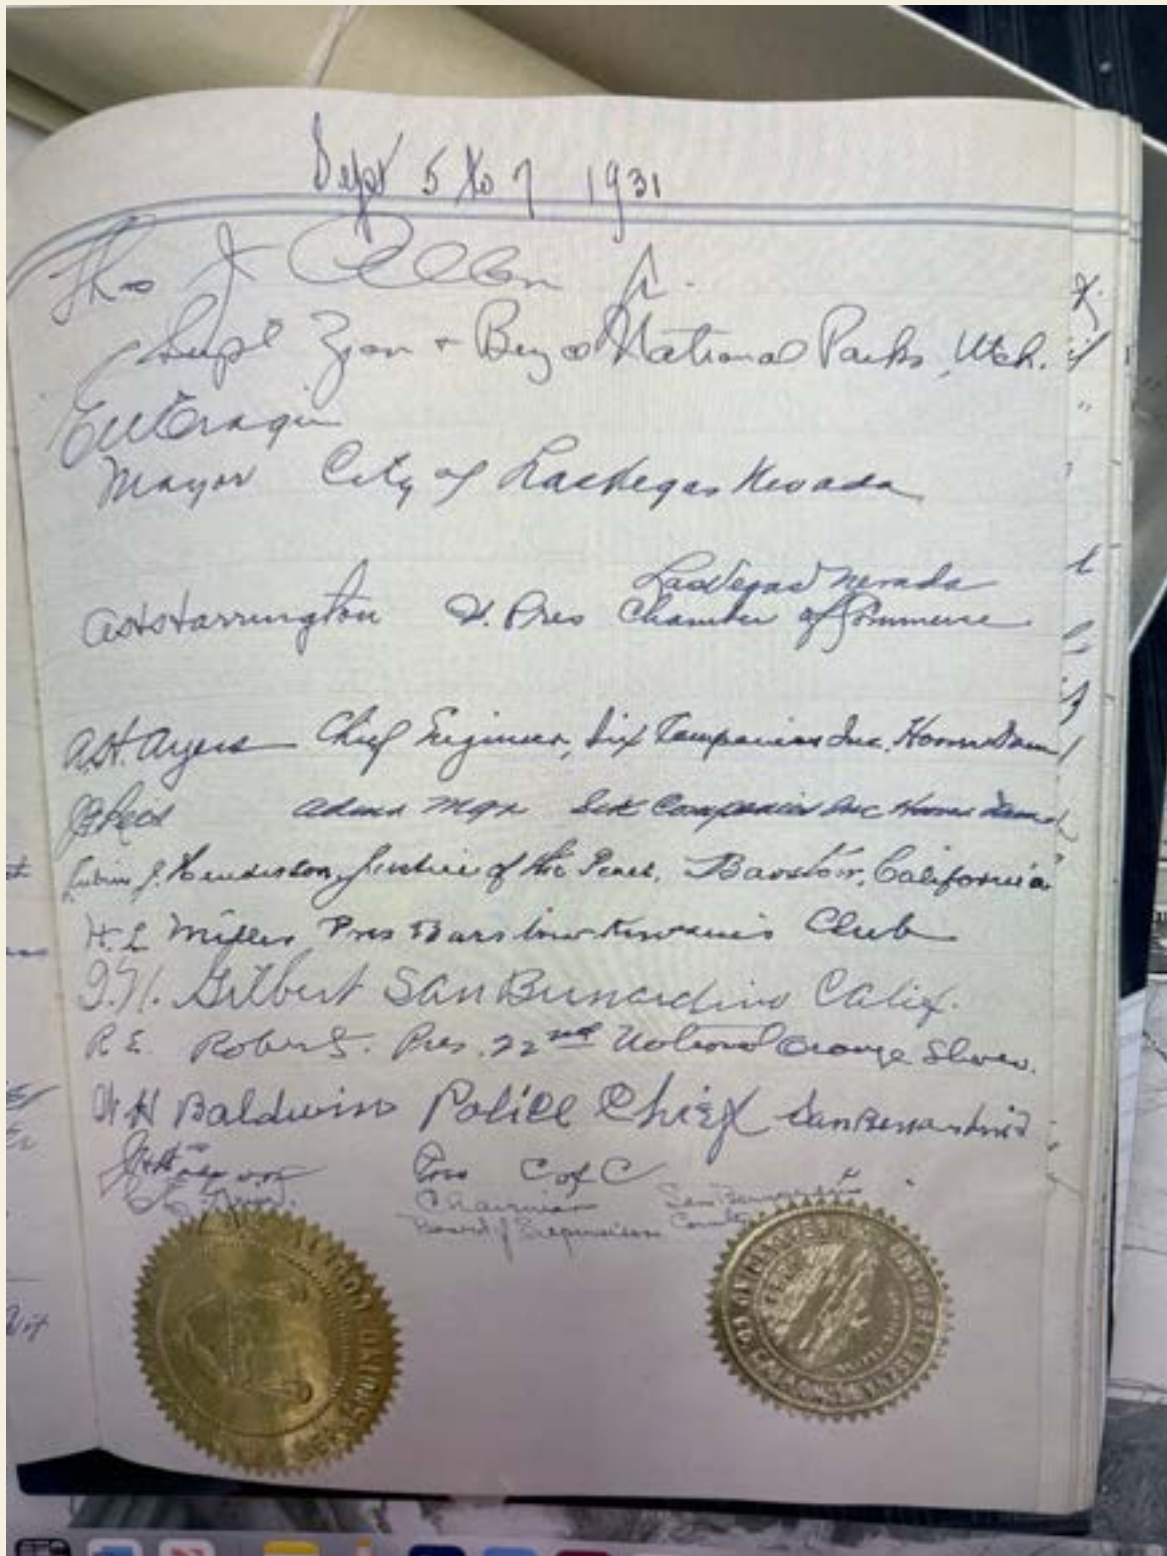 Sept 5 to 7 1931
Thos J Allen Jr.
Supt Zion + Bryce National Parks, Utah.
E W Cragin
Mayor City of Las Vegas Nevada
Las Vegas Nevada
A S Harrington V. Pres Chamber of Commerce
A.H. Ayers Chief Engineer, Six Companies Inc. Hoover Dam
J B Reid Admn Mgr Six Companies Inc Hoover Dam
J. Henderson, Justice of the Peace, Barstow, California
H. L Miller Pres Barstow Kiwanis Club
Gilbert San Bernardino Calif.
R. E. Roberts. Pres. 22nd National Orange Show.
W H Baldwin Police Chief San Bernardino
Pres C of C
Chairman San Bernardino
Board of Supervisors County